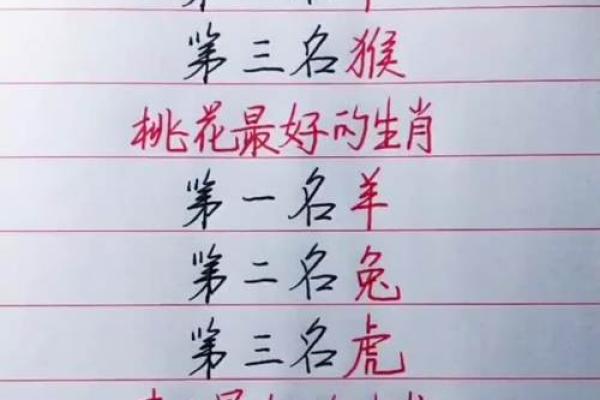 第三名猴
桃花最好的生肖
第一名羊
第二名兔
第三名虎